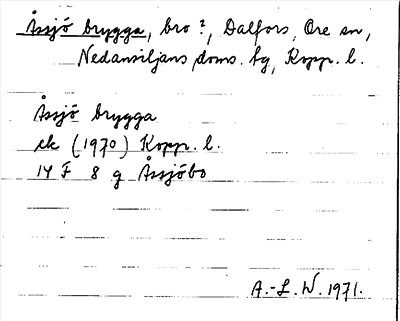 Åssjö brygga, bro?, Dalfors, Ore sn,
Nedansiljans doms. tg, Kopp. l.
Åssjö brygga
ek (1970) Kopp. l.
14 F 8 g Åssjöbo
A.-L. W. 1971.